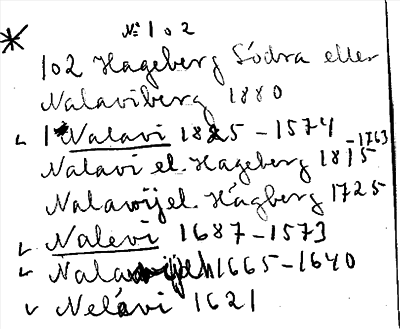 № 102
102 Hageberg Södra eller
Nalaviberg 1880
1 Nalavi 1825-1574
Nalavi el. Hageberg 1815-1763
Nalawijel. Hagberg 1725
Nalevi 1687-1573
1665-1640
Nelavi 1621